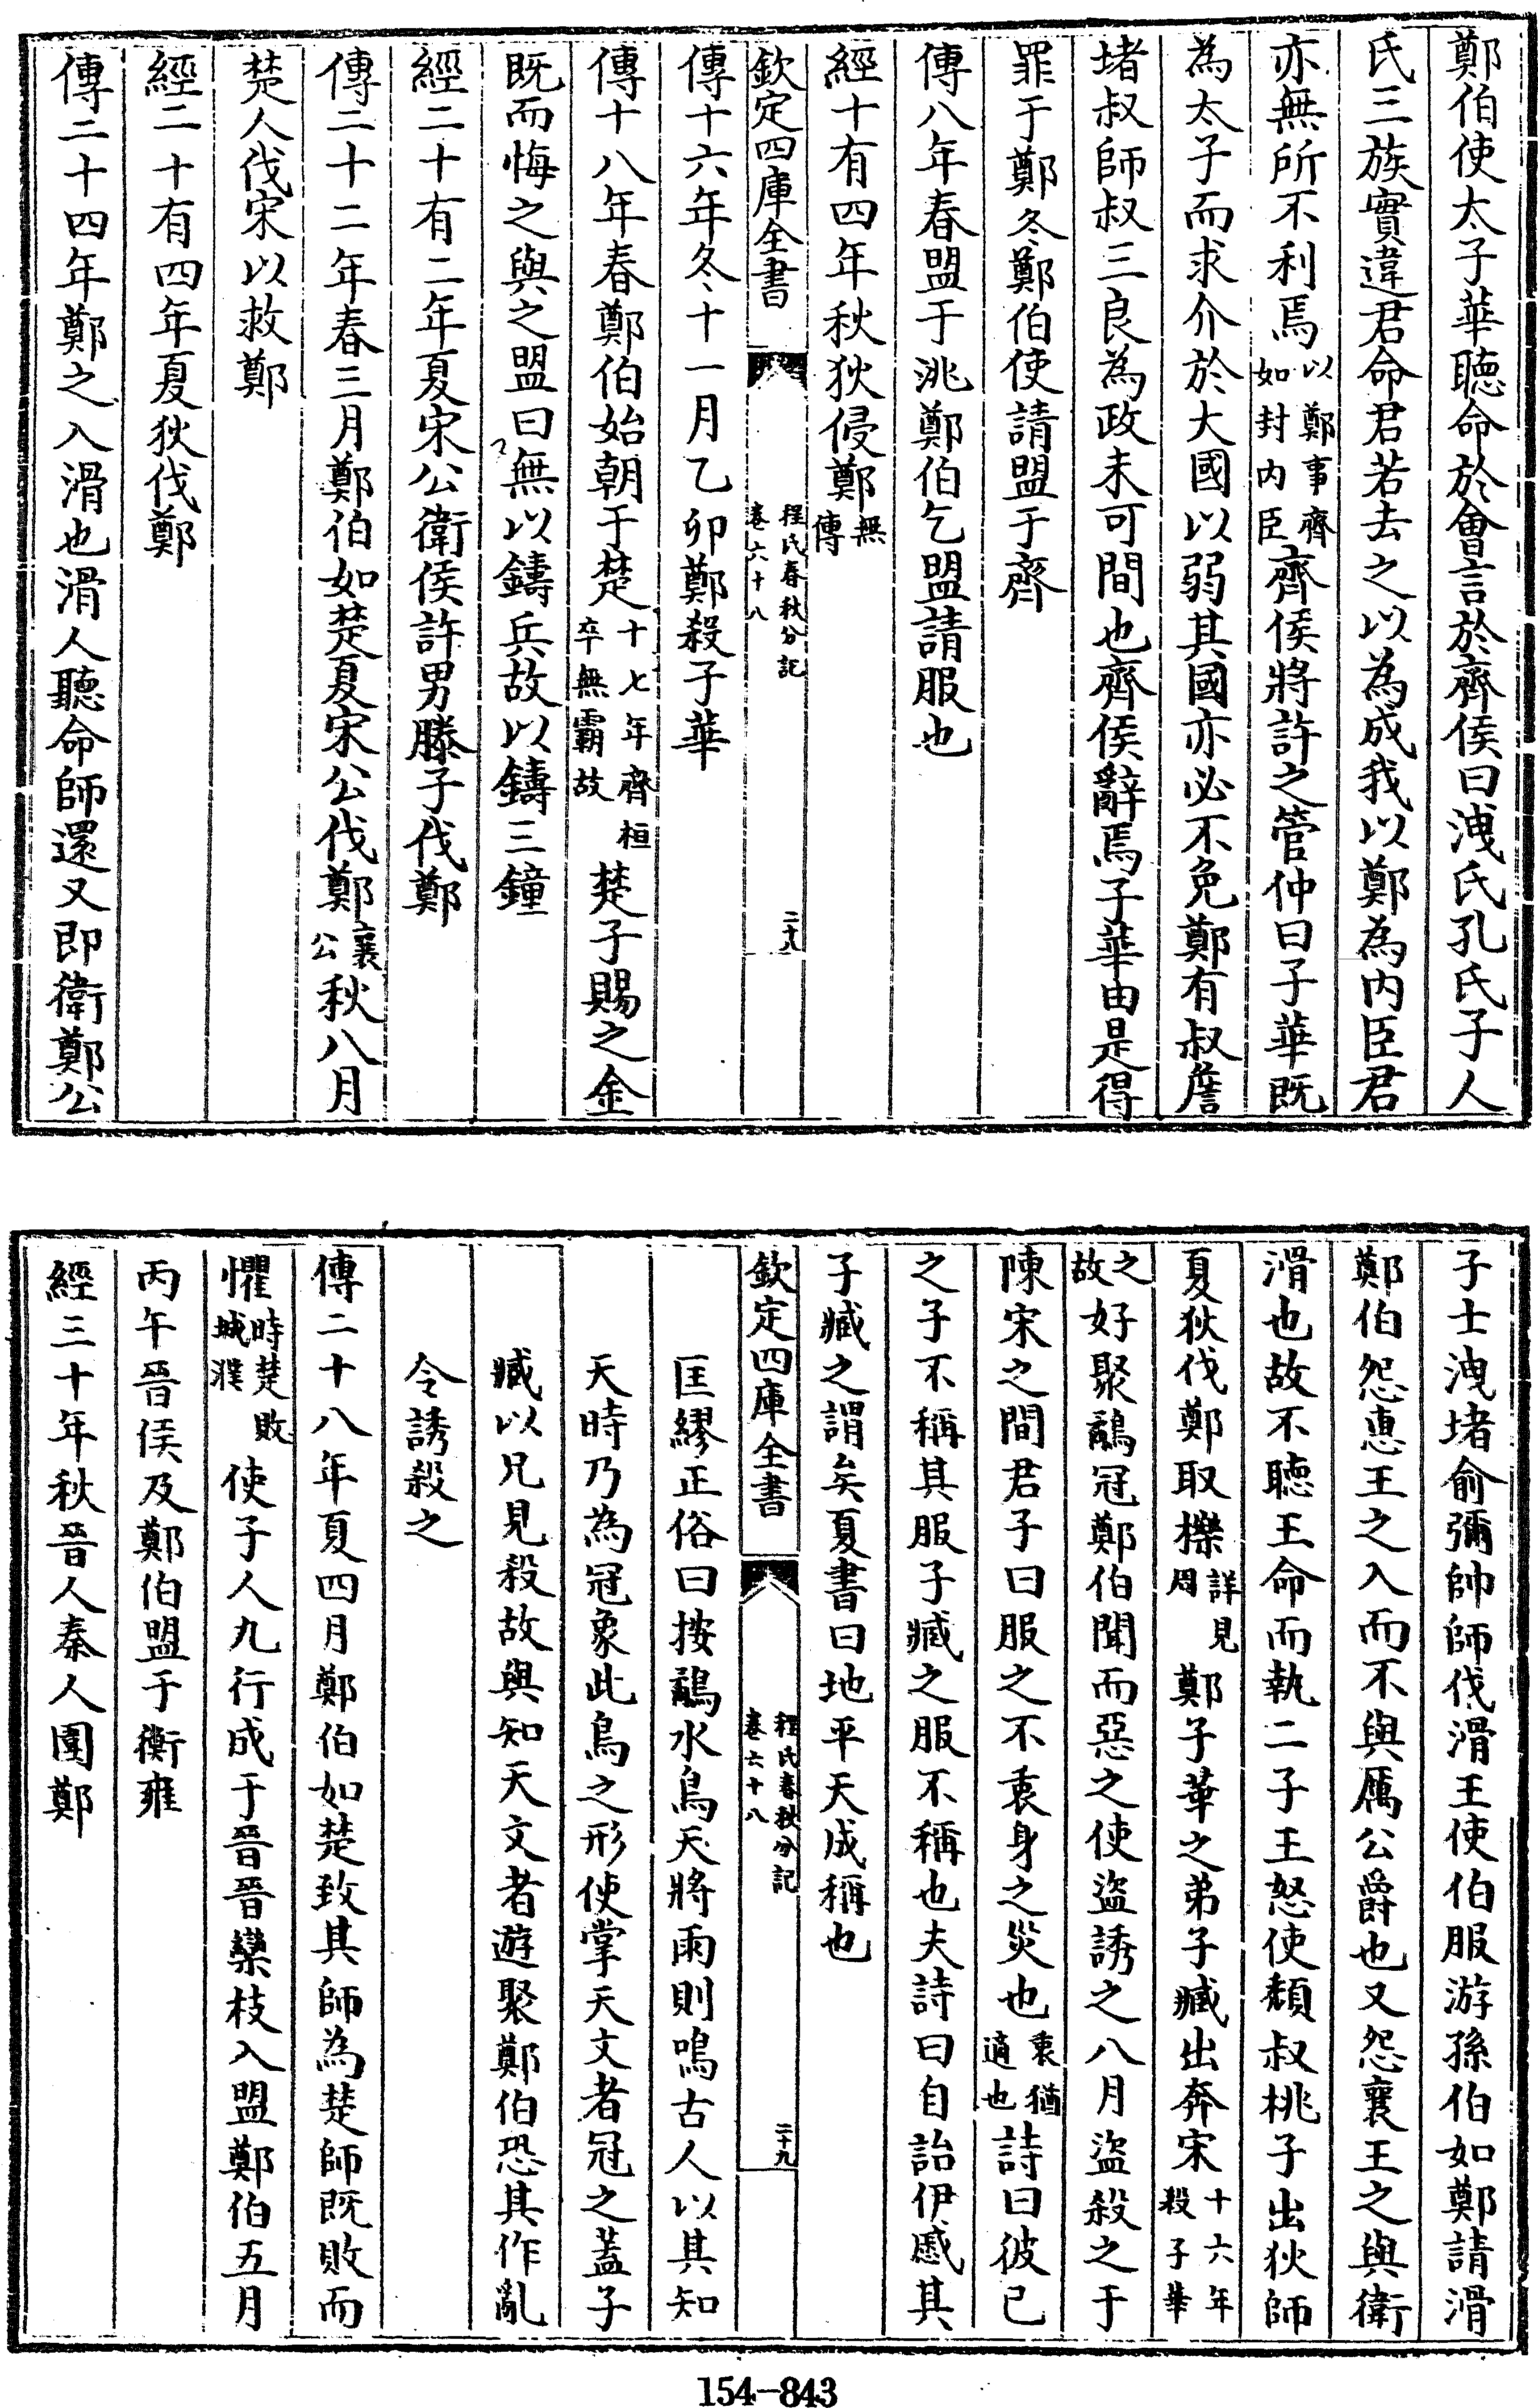 鄭伯使太子華聽命於會言於齊侯曰洩氏孔氏子人
氏三族實違君命君若去之以為成我以鄭為内臣君
亦無所不利焉以鄭事齊如封内臣齊侯將許之管仲曰子華既
為太子而求介於大國以弱其國亦必不免鄭有叔詹
堵叔師叔三良為政未可間也齊侯辭焉子華由是得
罪于鄭冬鄭伯使請盟于齊
傳八年春盟于洮鄭伯乞盟請服也
經十有四年秋狄侵鄭無傳
欽定四庫全書
程氏春秋分記
卷六十八
二十八
傳十六年冬十一月乙卯鄭殺子華
傳十八年春鄭伯始朝于楚十七年齊桓卒無霸故楚子賜之金
既而悔之與之盟曰無以鑄兵故以鑄三鐘
經二十有二年夏宋公衛侯許男滕子伐鄭
傳二十二年春三月鄭伯如楚夏宋公伐鄭襄公秋八月
楚人伐宋以救鄭
經二十有四年夏狄伐鄭
傳二十四年鄭之入滑也滑人聽命師還又即衛鄭公
子士洩堵俞彌帥師伐滑王使伯服游孫伯如鄭請滑
鄭伯怨惠王之入而不與厲公爵也又怨襄王之與衛
滑也故不聽王命而執二子王怒使頹叔桃子出狄師
夏狄伐鄭取櫟詳見周鄭子華之弟子臧出奔宋十六年殺子華
之故好聚鷸冠鄭伯聞而惡之使盜誘之八月盜殺之于
陳宋之間君子曰服之不衷身之災也衷猶適也詩曰彼已
之子不稱其服子臧之服不稱也夫詩曰自詒伊慼其
子臧之謂矣夏書曰地平天成稱也
欽定四庫全書
程氏春秋分記
卷六十八
二十九
匡繆正俗曰按鷸水鳥天將雨則鳴古人以其知
天時乃為冠象此鳥之形使掌天文者冠之蓋子
臧以兄見殺故與知天文者遊聚鄭伯恐其作亂
令誘殺之
傳二十八年夏四月鄭伯如楚致其師為楚師既敗而
懼時楚敗城濮使子人九行成于晉晉欒枝入盟鄭伯五月
丙午晉侯及鄭伯盟于衡雍
經三十年秋晉人秦人圍鄭
154-843